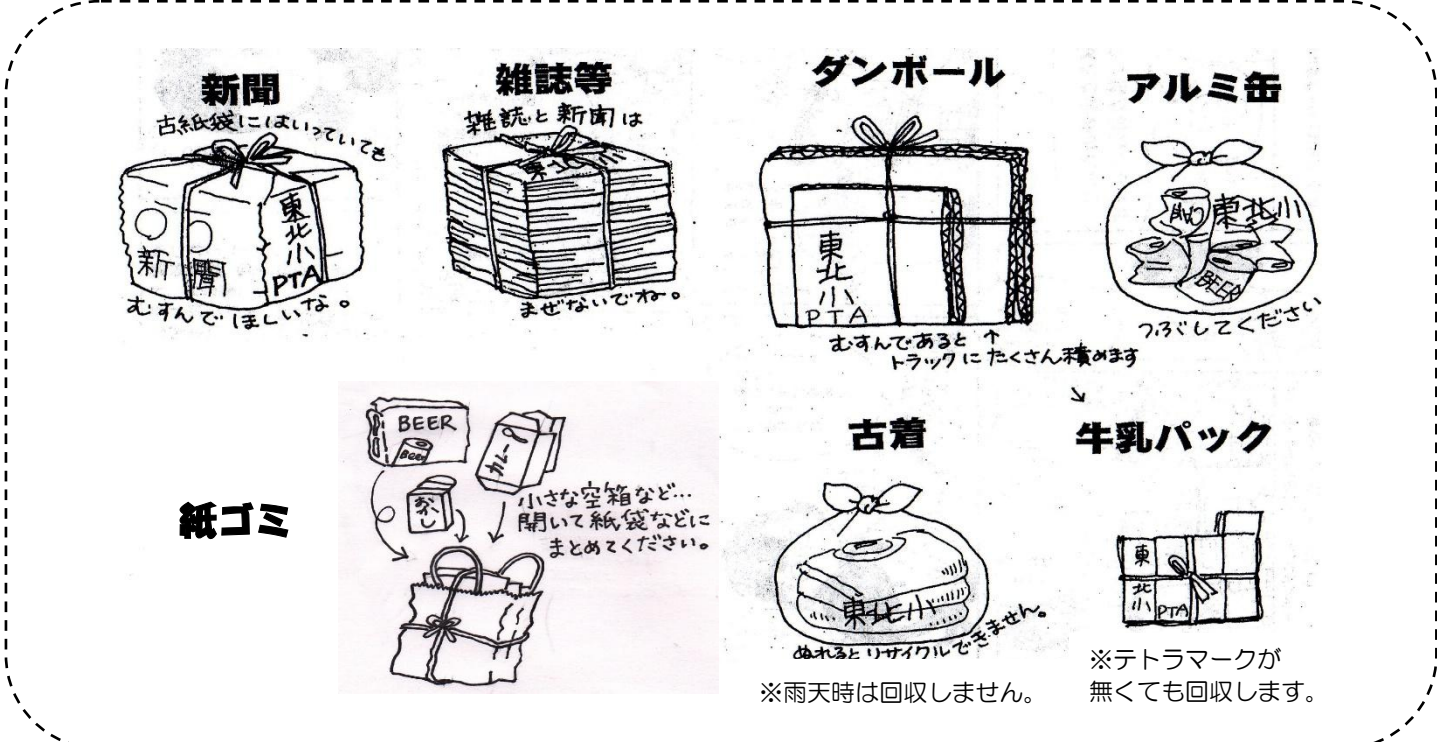 新聞
古紙袋にはいっていても
東北小PTA
新聞
むすんでほしいな。
雑誌等
雑誌と新聞は
東北小
まぜないでね。
ダンボール
東北小PTA
むすんであると↑
トラックにたくさん積めます
アルミ缶
東北小
CAN
BEER
つぶしてください
紙ゴミ
BEER
Beer
カレー
おかし
小さな空箱など…
開いて紙袋などに
まとめてください。
古着
東北小
ぬれるとリサイクルできません。
※雨天時は回収しません。
牛乳パック
東北小PTA
※テトラマークが
無くても回収します。